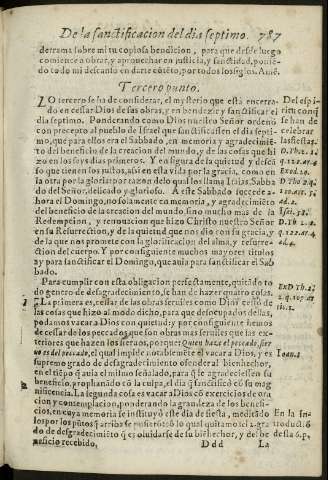 De la sanctificacion del dia septimo. 787
derrama sobre mi tu copiosa bendicion, para que desde luego
comience a obrar, y aprouechar en justicia, y sanctidad, ponié-
do todo mi descanso en darte cõtēto, por todos los siglos. Amē.
Tercero punto.
LO tercero se ha de considerar, el mysterio que està encerra-
do en cessar Dios de sus obras, y en bendezir y sanctificar el
dia septimo. Ponderando como Dios nuestro Señor ordenò
con precepto al pueblo de Israel que sanctificassen el dia septi-
mo, que para ellos era el Sabbado, en memoria y agradecimiē-
to del beneficio de la creacion del mundo, y de las cosas que hi
zo en los seys dias primeros. Y en figura de la quietud y descã
so que tienen los justos, assi en esta vida por la gracia, como en
la otra por la gloria: por razon de lo qual los llama Isaias, Sabba
do del Señor, delicado y glorioso. A este Sabbado succede a-
hora el Domingo, no solamente en memoria, y agradecimiēto
del beneficio de la creacion del mundo, sino mucho mas de la
Redemption, y renouacion que hizo Christo nuestro Señor
en su Resurrection, y de la quietud que nos dio con su gracia, y
de la que nos promete con la glorificacion del alma, y resurre-
ction del cuerpo. Y por consiguiente muchos mayores titulos
ay para sanctificar el Domingo, que auia para sanctificar el Sab
bado.
Para cumplir con esta obligacion perfectamente, quitãdo to
do genero de desagradecimiento, se han de hazer quatro cosas.
La primera es, cessar de las obras seruiles como Dios cessò de
las cosas que hizo al modo dicho, para que desocupados dellas,
podamos vacar a Dios con quietud: y por consiguiente hemos
de cessar de los peccados, que son obras mas seruiles que las ex-
teriores que hazen los sieruos, porque Quien haze el peccado, sier
uo es del peccado, el qual impide notablemēte el vacar a Dios, y es
supremo grado de desagradecimiento ofender al bienhechor,
en el tiēpo q̃ auia el mismo señalado, para q̃ se agradeciessen su
beneficio, prophanãdo cõ la culpa, el dia q̃ sanctificò cõ su mag
nificencia. La segunda cosa es vacar a Dios cõ exercicios de ora
cion y contemplacion, ponderando la grandeza de los benefi-
cios, en cuya memoria se instituyò este dia de fiesta, meditãdo
los por los pũtos q̃ arriba se pusierõ: cõ lo qual quitamos el 2. gra-
do de desgradecimiēto q̃ es oluidarse de su biēhechor, y del be
neficio recebido, Ddd La
Del espi-
ritu conq̃
se han de
celebrar
las fiestas.
D. Th. 2.
2.q.122.ar.4
Exod. 20.
Isai. 58.
Ioan. 8
En la In-
troductiõ
desta 6.p.